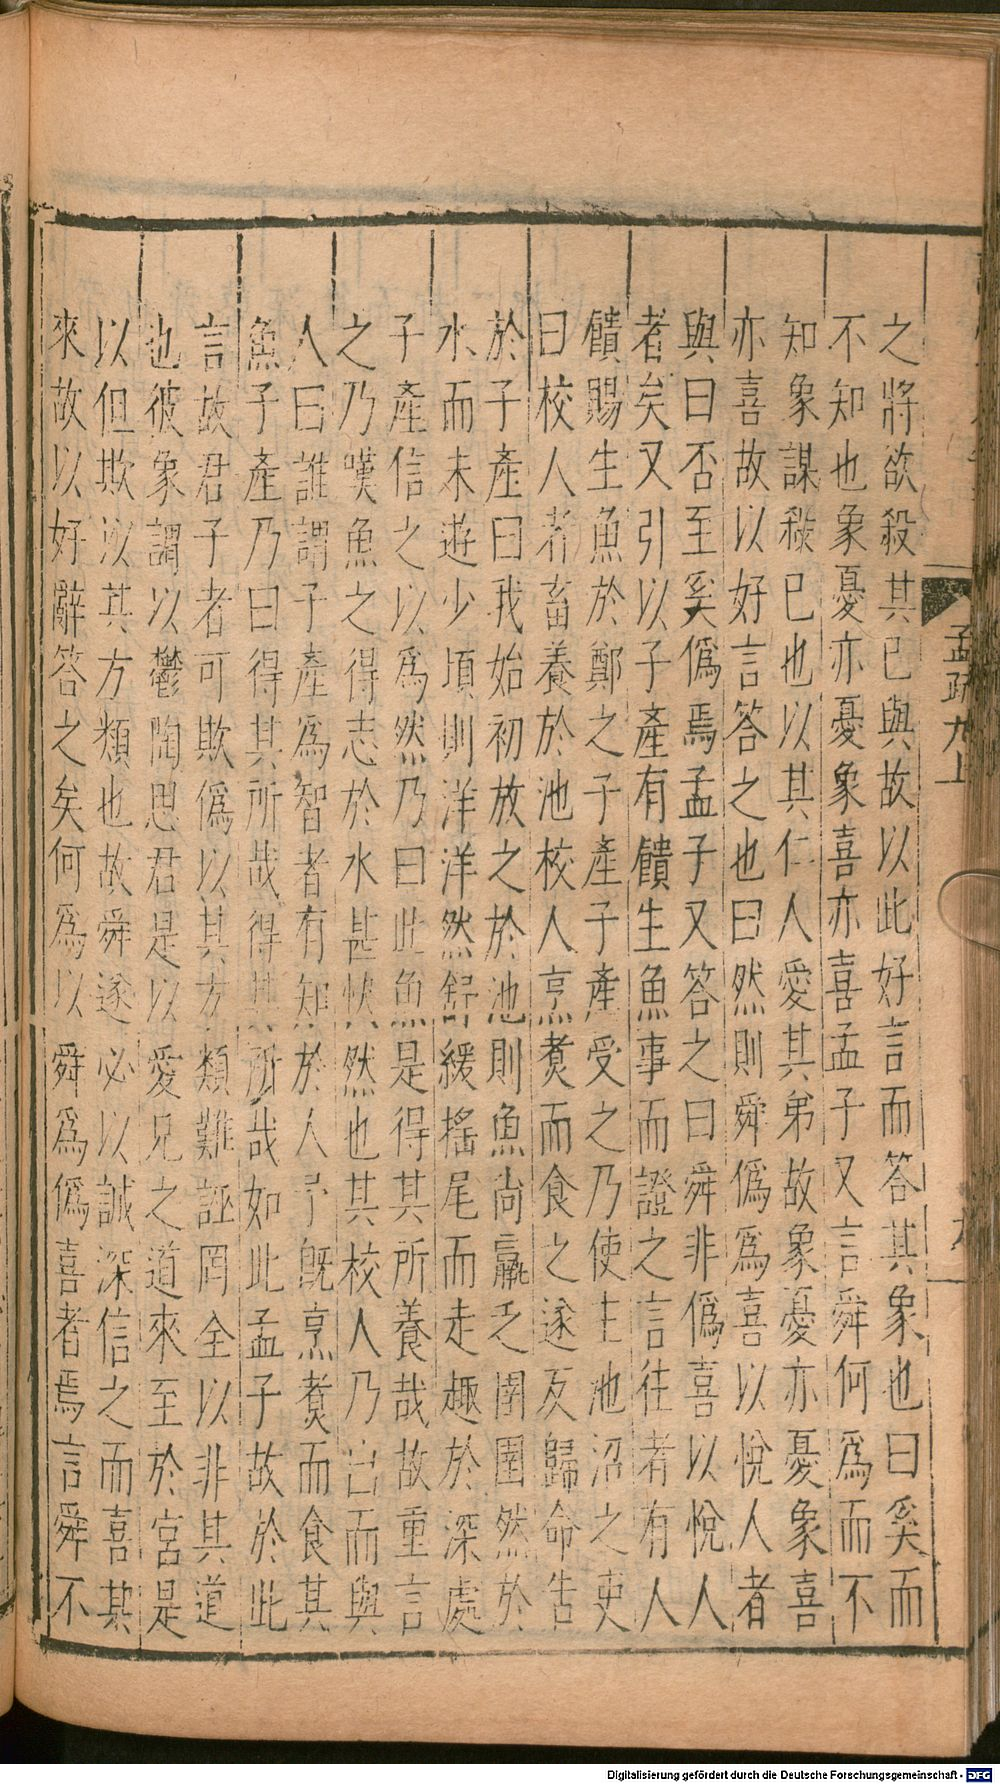 孟疏九上
之將欲殺其已與故以此好言而答其象也曰奚而
不知也象憂亦憂象喜亦喜孟子又言舜何為而不
知象謀殺巳也以其仁人愛其弟故象憂亦憂象喜
亦喜故以好言答之也曰然則舜偽為喜以悅人者
與曰否至奚偽焉孟子又答之曰舜非偽喜以悅人
者矣又引以子產有饋生魚事而證之言往者有人
饋賜生魚於鄭之子產子產受之乃使主池沼之吏
曰校人者畜養於池校人烹煑而食之遂反歸命告
於子產曰我始初放之於池則魚尚羸乏圉圉然於
水而未遊少頃則洋洋然舒緩搖尾而走趣於深處
子產信之以為然乃曰此魚是得其所養哉故重言
之乃嘆魚之得志於水甚快然也其校人乃出而與
人曰誰謂子產為智者有知於人予既烹煑而食其
魚子產乃曰得其所哉得其所哉如此孟子故於此
言故君子者可欺偽以其方類難誣罔全以非其道
也彼象謂以鬱陶思君是以愛兄之道來至於宮是
以但欺以其方類也故舜遂必以誠深信之而喜其
來故以好辭答之矣何為以舜為偽喜者焉言舜不
Digitalisierung gefördert durch die Deutsche Forschungsgemeinschaft - DFG